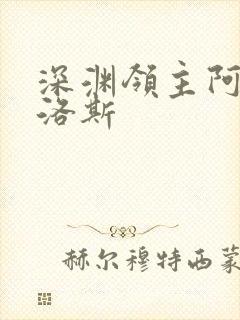 深渊领主阿
洛斯
赫尔穆特西蒙